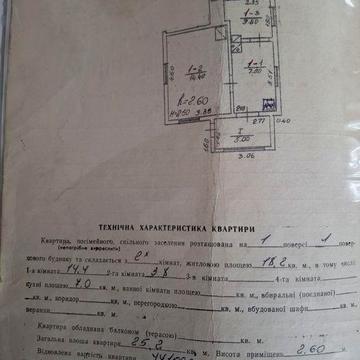 2.85
1-3
9.60
1-2
14.40
1-1
7.00
h=2.60
2.77
0.40
I
5.00
3.06
ТЕХНІЧНА ХАРАКТЕРИСТИКА КВАРТИРИ
Квартира, посімейного, спільного заселення розташована на 1 поверсі 1 повер-
(непотрібне викреслити)
хового будинку та складається з 2х кімнат, житловою площею 18,2 кв. м, в тому числі
1-а кімната 14,4 2-га кімната 3,8 3-я кімната кв. м, 4-та кімната
кухні площею 7.0 кв. м, ванної кімнати площею кв. м, вбиральні (поєднаної)
кв. м, коридор кв. м, перегородкою кв. м, вбудованої шафи кв. м,
веранди
Квартира обладнана балконом (терасою) кв. м
Загальна площа квартири 25,2 кв. м, Висота приміщень 2,60 м
Відновлена вартість квартири